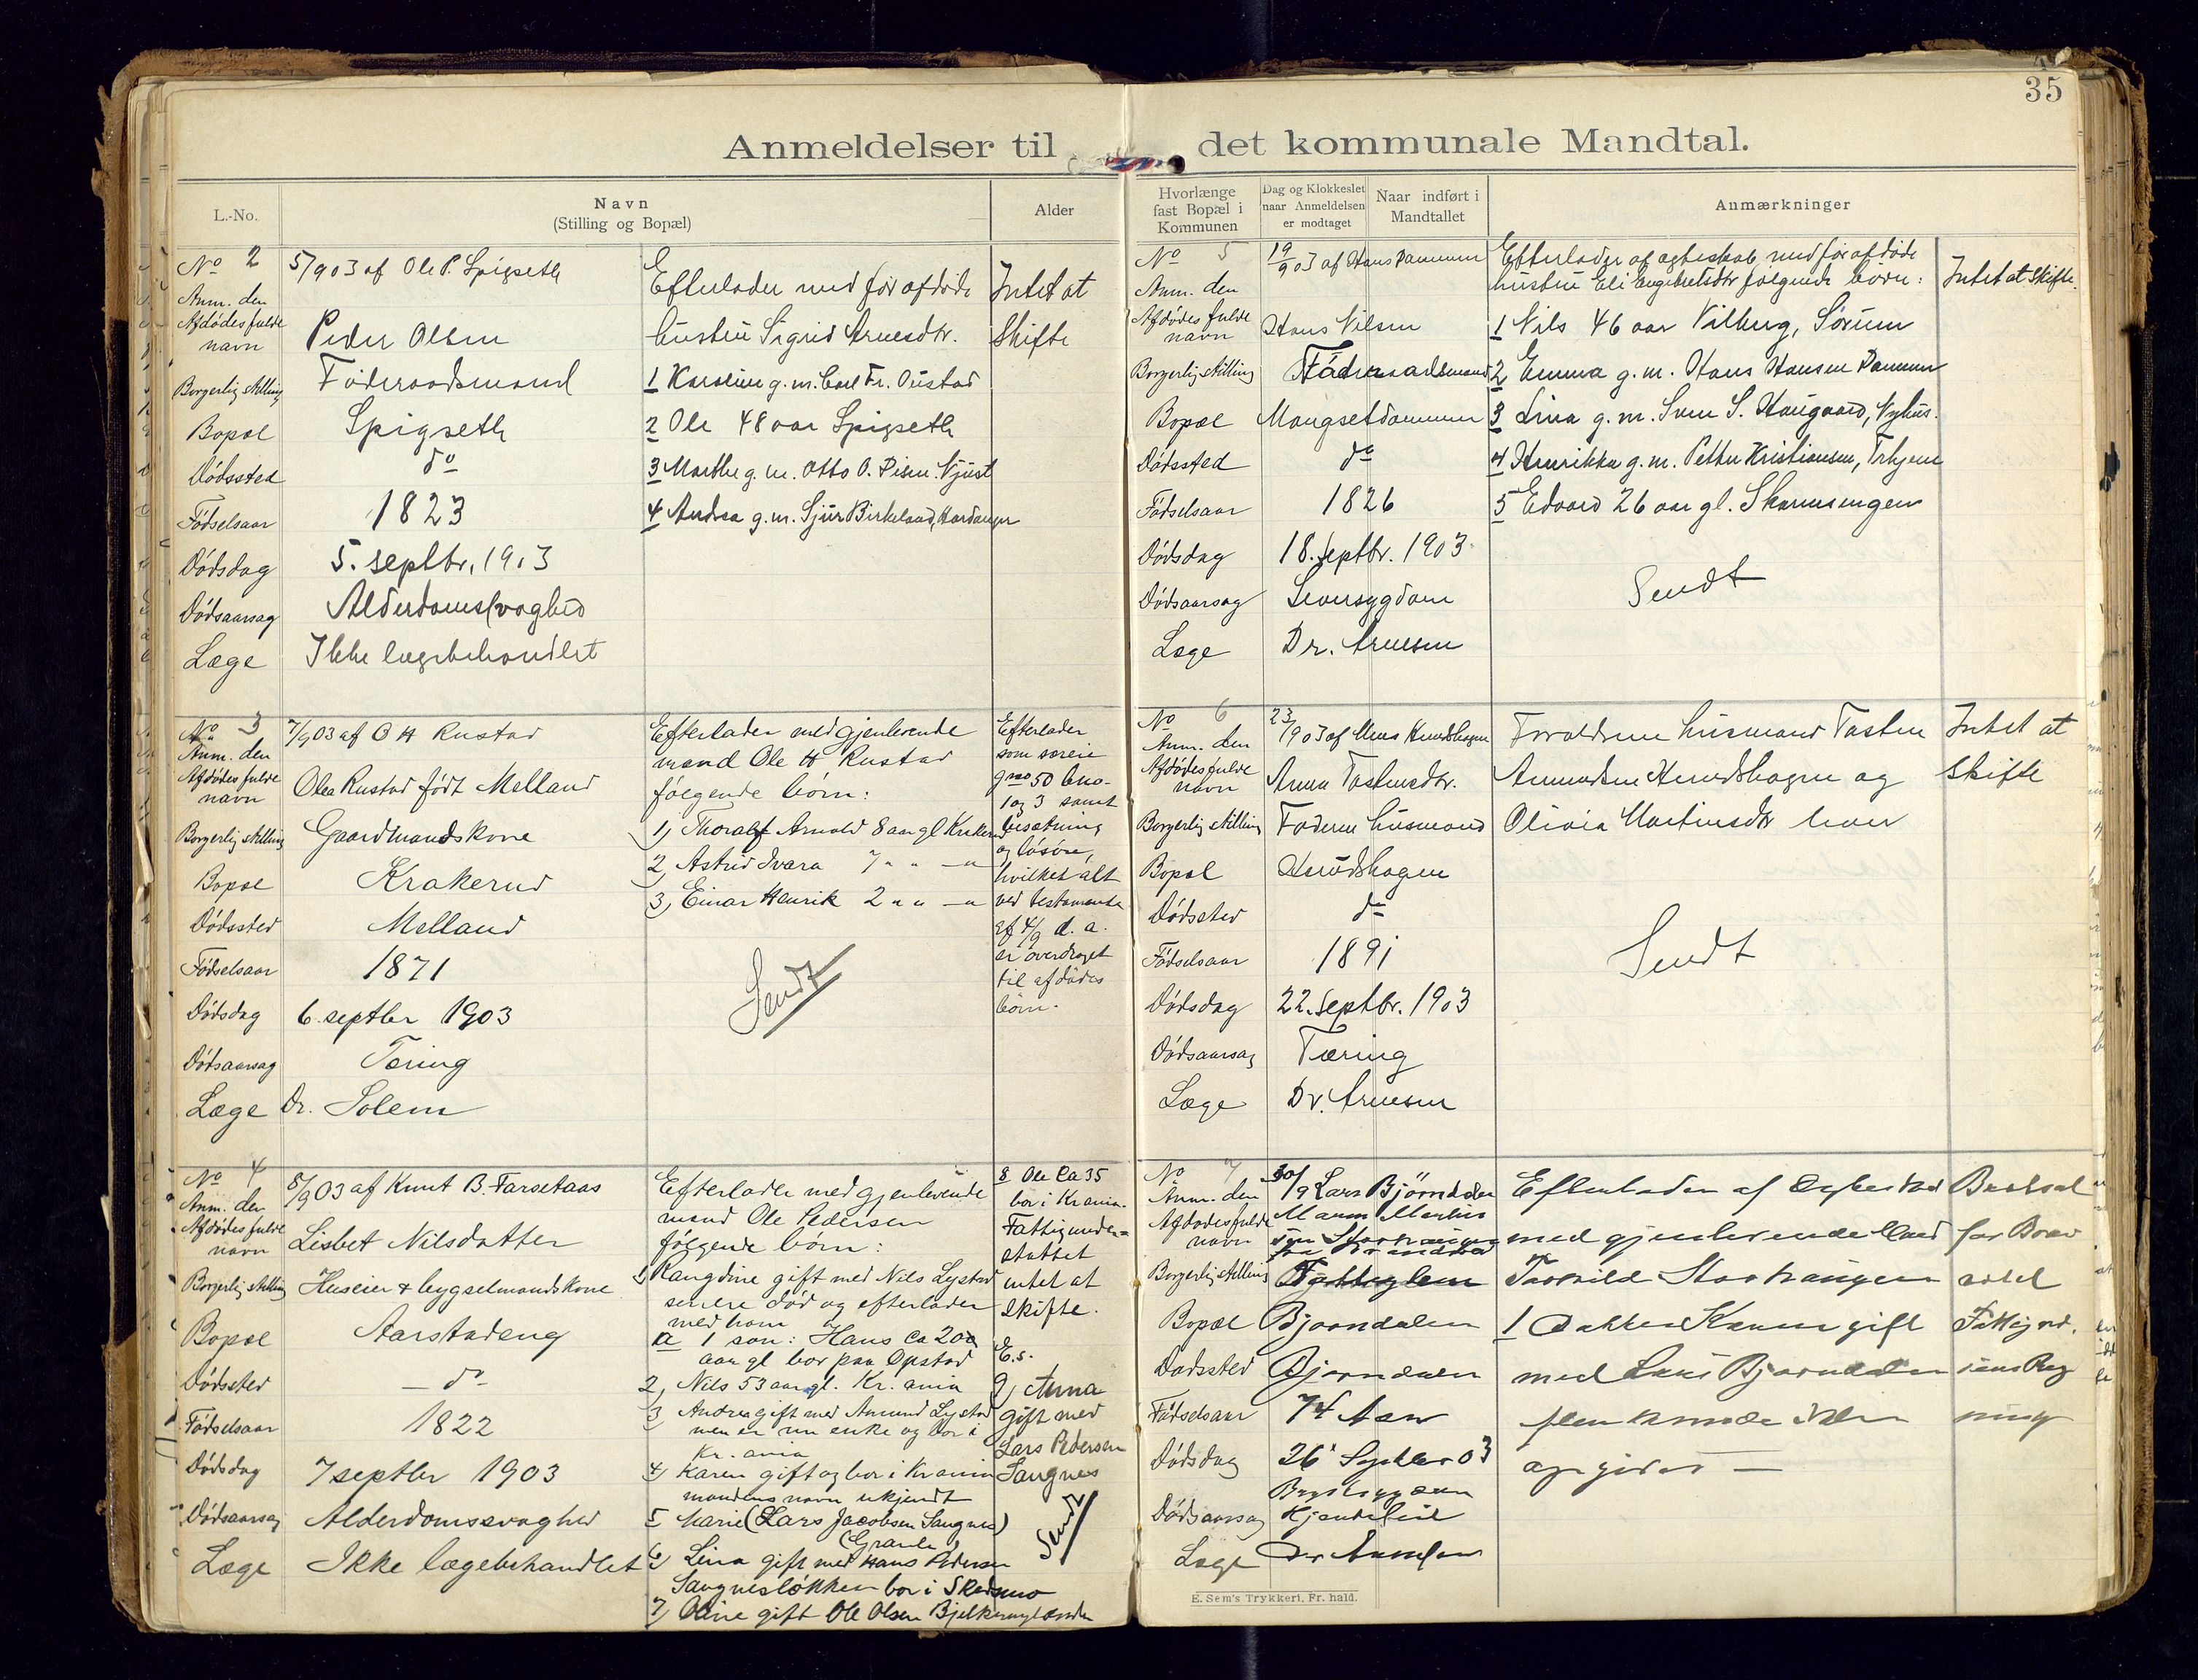 35
Anmeldelser til det kommunale Mandtal.
L.-No.
Navn
(Stilling og Bopæl)
Alder
Hvorlænge
fast Bopæl i
Kommunen
Dag og Klokkeslet
naar Anmeldelsen
er modtaget
Naar indført i
Mandtallet
Anmærkninger
No 2
5/9 03 af Ole P. Spigseth
Anm. den
Afdødes fulde
navn
Peder Olsen
Borgerlig stilling
Føderaadsmand
Bopæl
Spigseth
Dødssted
do
Fødselsaar
1823
Dødsdag
5. septbr. 1903
Dødsaarsag
Alderdomssvaghed
Læge
Ikke lægebehandlet
Efterlader med før afdøde
hustru Sigrid Arnesdtr.
1 Karoline g. m. Carl Fr. Oustad
2 Ole 48 aar Spigseth
3 Marthe g. m. Otto O.
4 Andrea g. m. Sjur Birkeland, Hardanger
Intet at
Skifte
No 3
7/9 03 af O H Rustad
Anm. den
Afdødes fulde
navn
Olea Rustad født Melland
Borgerlig stilling
Gaardmandskone
Bopæl
Krakerud
Dødssted
Melland
Fødselsaar
1871
Dødsdag
6. septbr 1903
Dødsaarsag
Tæring
Læge
Dr. Solem
Efterlader med gjenlevende
mand Ole H Rustad
følgende børn:
1) Thoralf Arnold 8 aar gl Krakerud
2) Astrid Svara 7 " " — "
3) Einar Henrik 2 " " — "
Sendt
Efterlader
som særeie
gno 50 bno.
1 og 3 samt
besætning
og løsøre,
hvilket alt
ved testamente
af 4/9 d. a.
er overdraget
til afdødes
børn.
No 4
8/9 03 af Knut B. Farsetaas
Anm. den
Afdødes fulde
navn
Lisbet Nilsdatter
Borgerlig stilling
Huseier & bygselmandskone
Bopæl
Aarstadeng
Dødssted
— do
Fødselsaar
1822
Dødsdag
7 septbr 1903
Dødsaarsag
Alderdomssvaghed
Læge
Ikke lægebehandlet
Efterlader med gjenlevende
mand Ole Pedersen
følgende børn:
1) Rangdine gift med Nils Lystad
senere død og efterlader
med ham
a 1 søn: Hans ca 20
aar gl bor paa Opstad
2) Nils 53 aar gl. Kr. ania
3) Andrea gift med Amund Lystad
men er nu enke og bor i
Kr. ania
4) Karen gift og bor i Kr ania
mandens navn ukjendt
5 Marie (Lars Jacobsen Sangnes)
6) Lina gift med Hans Pedersen
Sangnesløkken bor i Skedsmo
7) Oline gift Ole Olsen
8 Ole Ca 35
bor i Krania.
Fattigunder=
støttet
intet at
skifte.
E.s.
9) Anna
gift med
Lars Pedersen
Sangnes
Sendt
No 5
19/9 03 af Hans Dammen
Anm. den
Afdødes fulde
navn
Hans Nilsen
Borgerlig stilling
Føderaadsmand
Bopæl
Mangsetdammen
Dødssted
do
Fødselsaar
1826
Dødsdag
18. septbr. 1903
Dødsaarsag
Leversygdom
Læge
Dr. Arnesen
Efterlader af ægteskab med før afdøde
hustru Eli Engebretsdtr følgende børn:
1 Nils 46 aar Vilberg, Sørum
2 Emma g. m. Hans Hansen Dammen
3 Lina g. m. Sven S. Haugaard, Nyhus.
4 Henrikke g. m. Petter Kristiansen,
5 Edvard 26 aar gl.
Sendt
Intet at Skifte.
No 6
23/9 03 af
Anm. den
Afdødes fulde
navn
Anna Tostensdtr.
Borgerlig stilling
Faderen husmand
Bopæl
Hundshagen
Dødssted
do
Fødselsaar
1891
Dødsdag
22. septbr. 1903
Dødsaarsag
Tæring
Læge
Dr. Arnesen
Forældrene husmand Tosten
Amundsen Hundshagen og
Olivia Martinsdtr lever
Sendt
Intet at
skifte
No 7
30/9 Lars Bjørndalen
Anm. den
Afdødes fulde
navn
Borgerlig stilling
Bopæl
Bjørndalen
Dødssted
Bjørndalen
Fødselsaar
74 Aar
Dødsdag
26 Septbr 03
Dødsaarsag
Brystsygdom
Hjertefeil
Læge
Dr Arnesen
Efterlader af
med gjenlevende
1 Datter Karen gift
med Lars Bjørndalen
E. Sem's Trykkeri, Fr. hald.